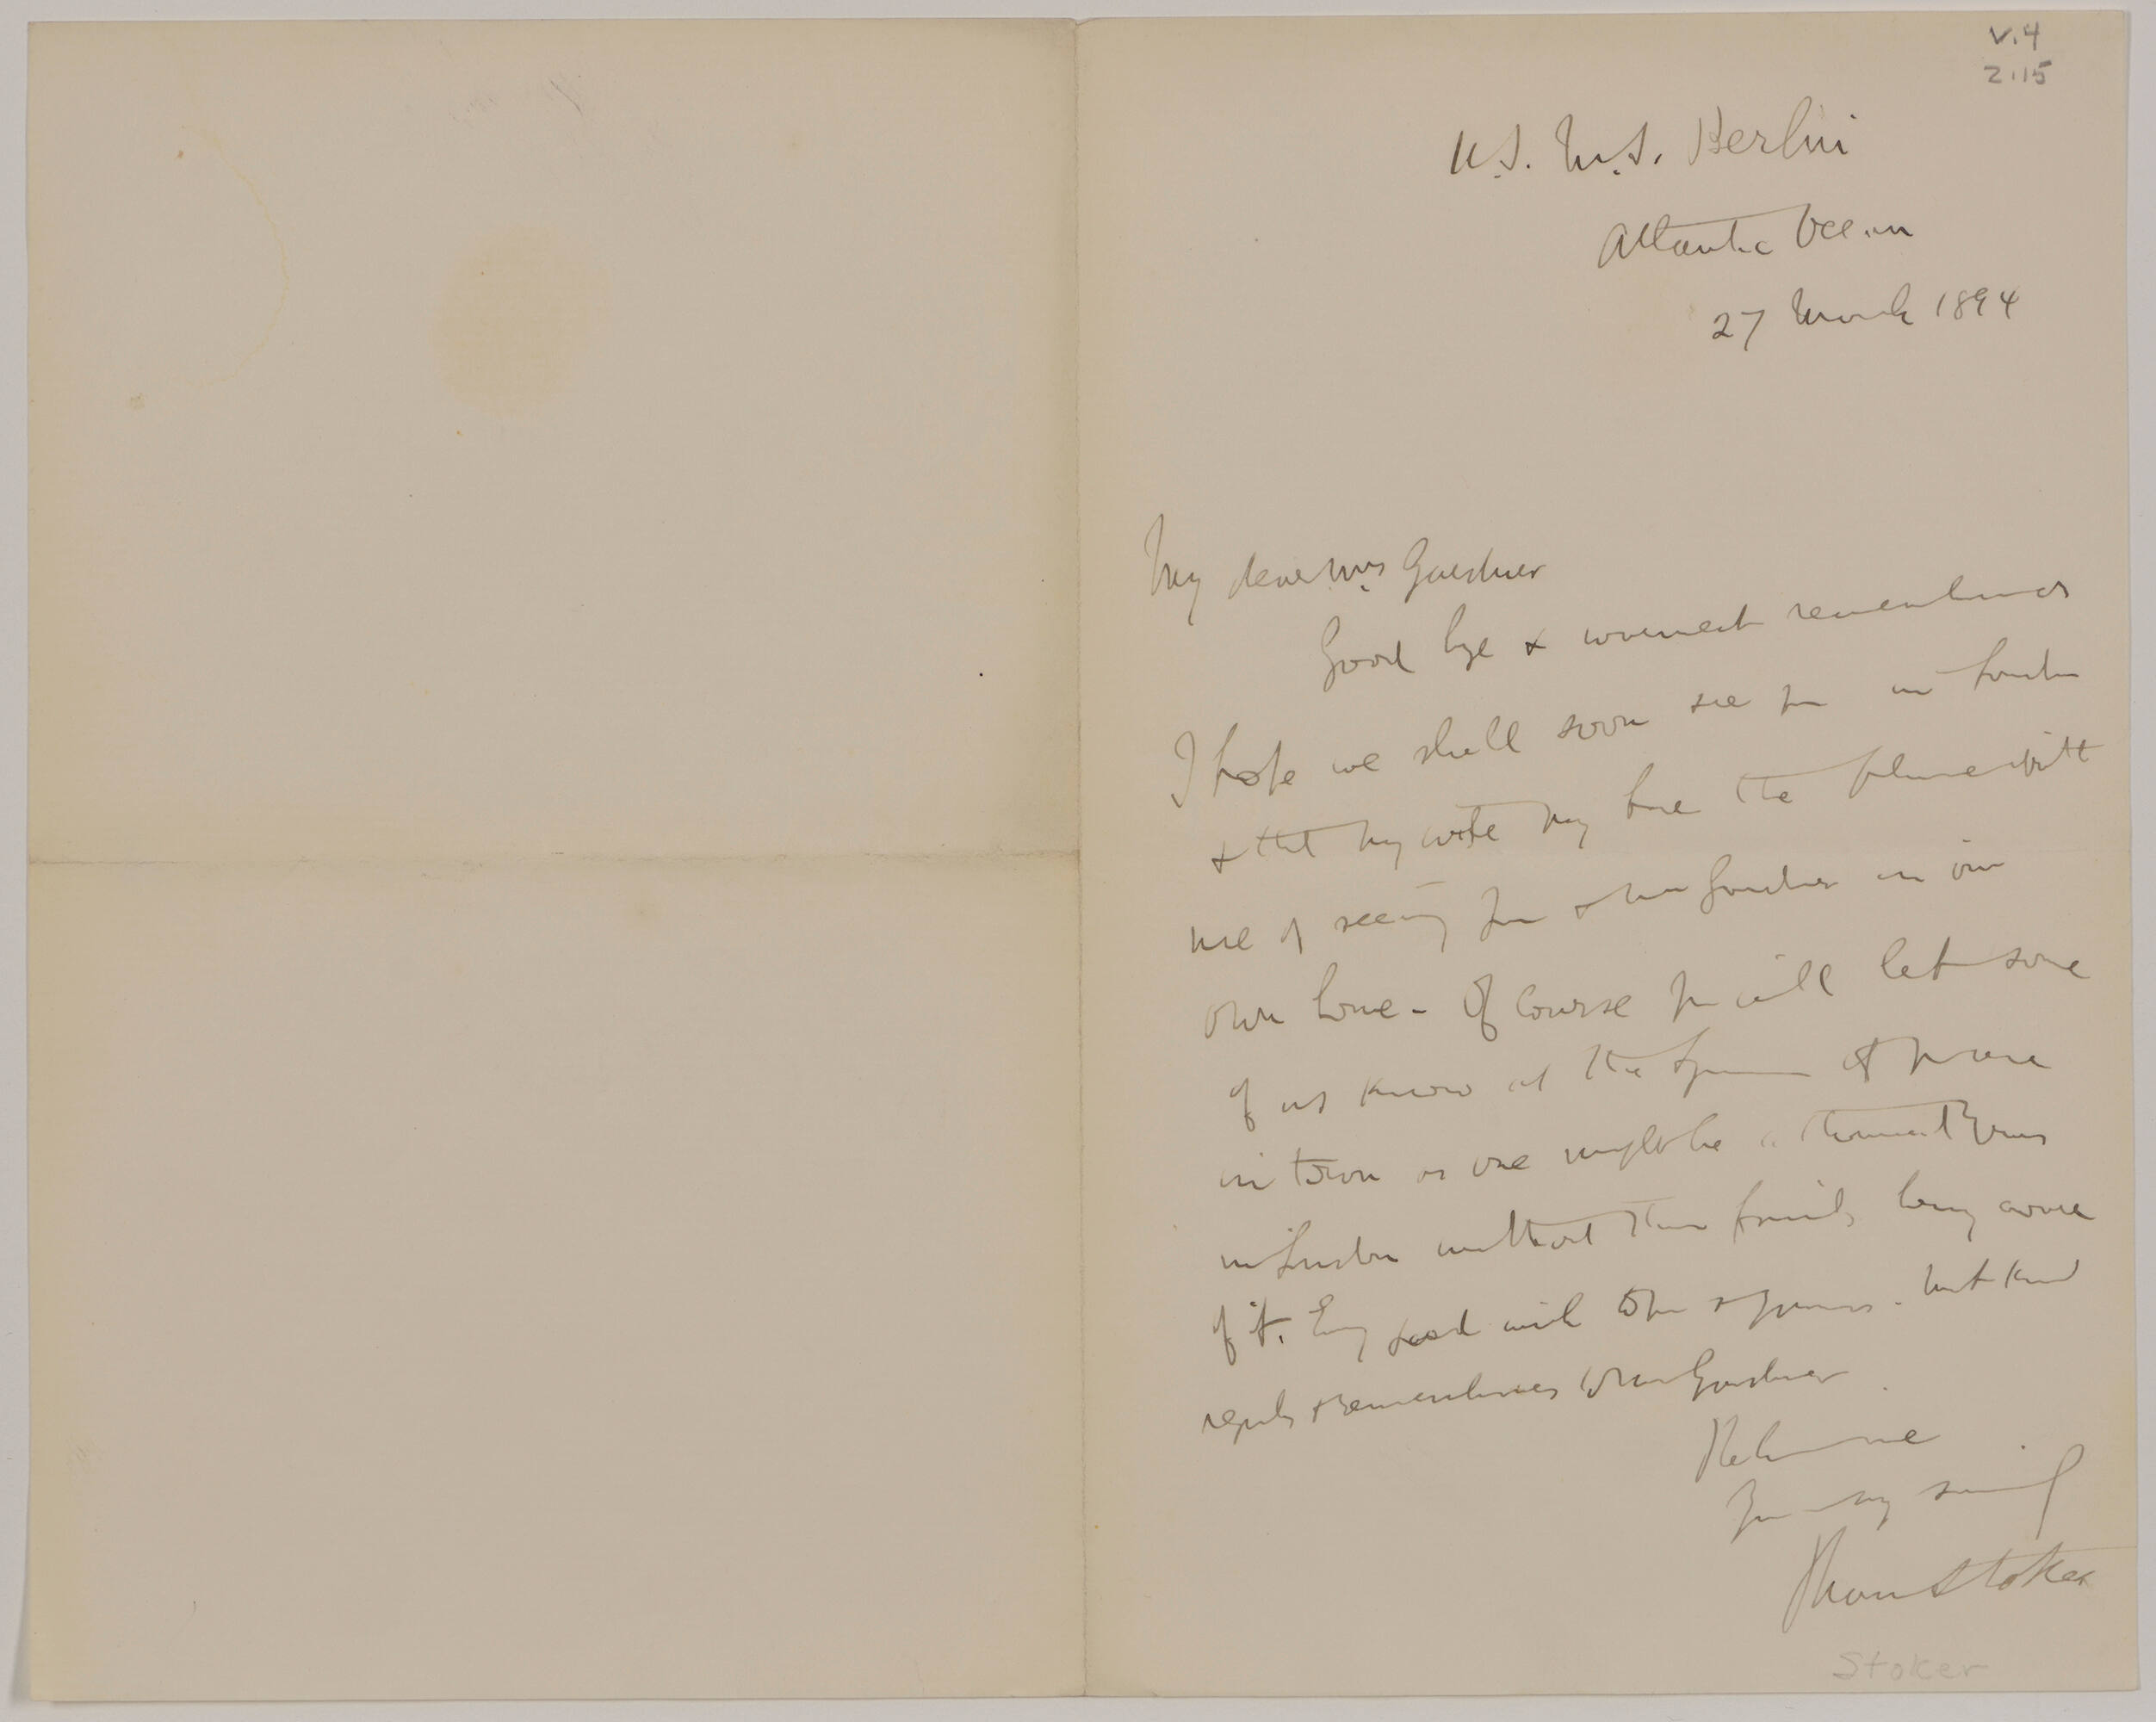 V.4
2.15
U.S. M.S. Berlin
Atlantic Ocean
27 March 1894
My dear Mrs Gardner
Good bye & warmest remembrances
I hope we shall soon see you in London
& that my wife may have the pleasure with
me of seeing you & Mr Gardner in our
own home - Of course you will let some
of us know at the Lyceum if you are
in town as one might be a thousand years
in London without their friends being aware
of it. Every good wish to you & yours. with kind
regards & remembrances to Mr Gardner
Believe me
Yours very sincerely
Bram Stoker
Stoker